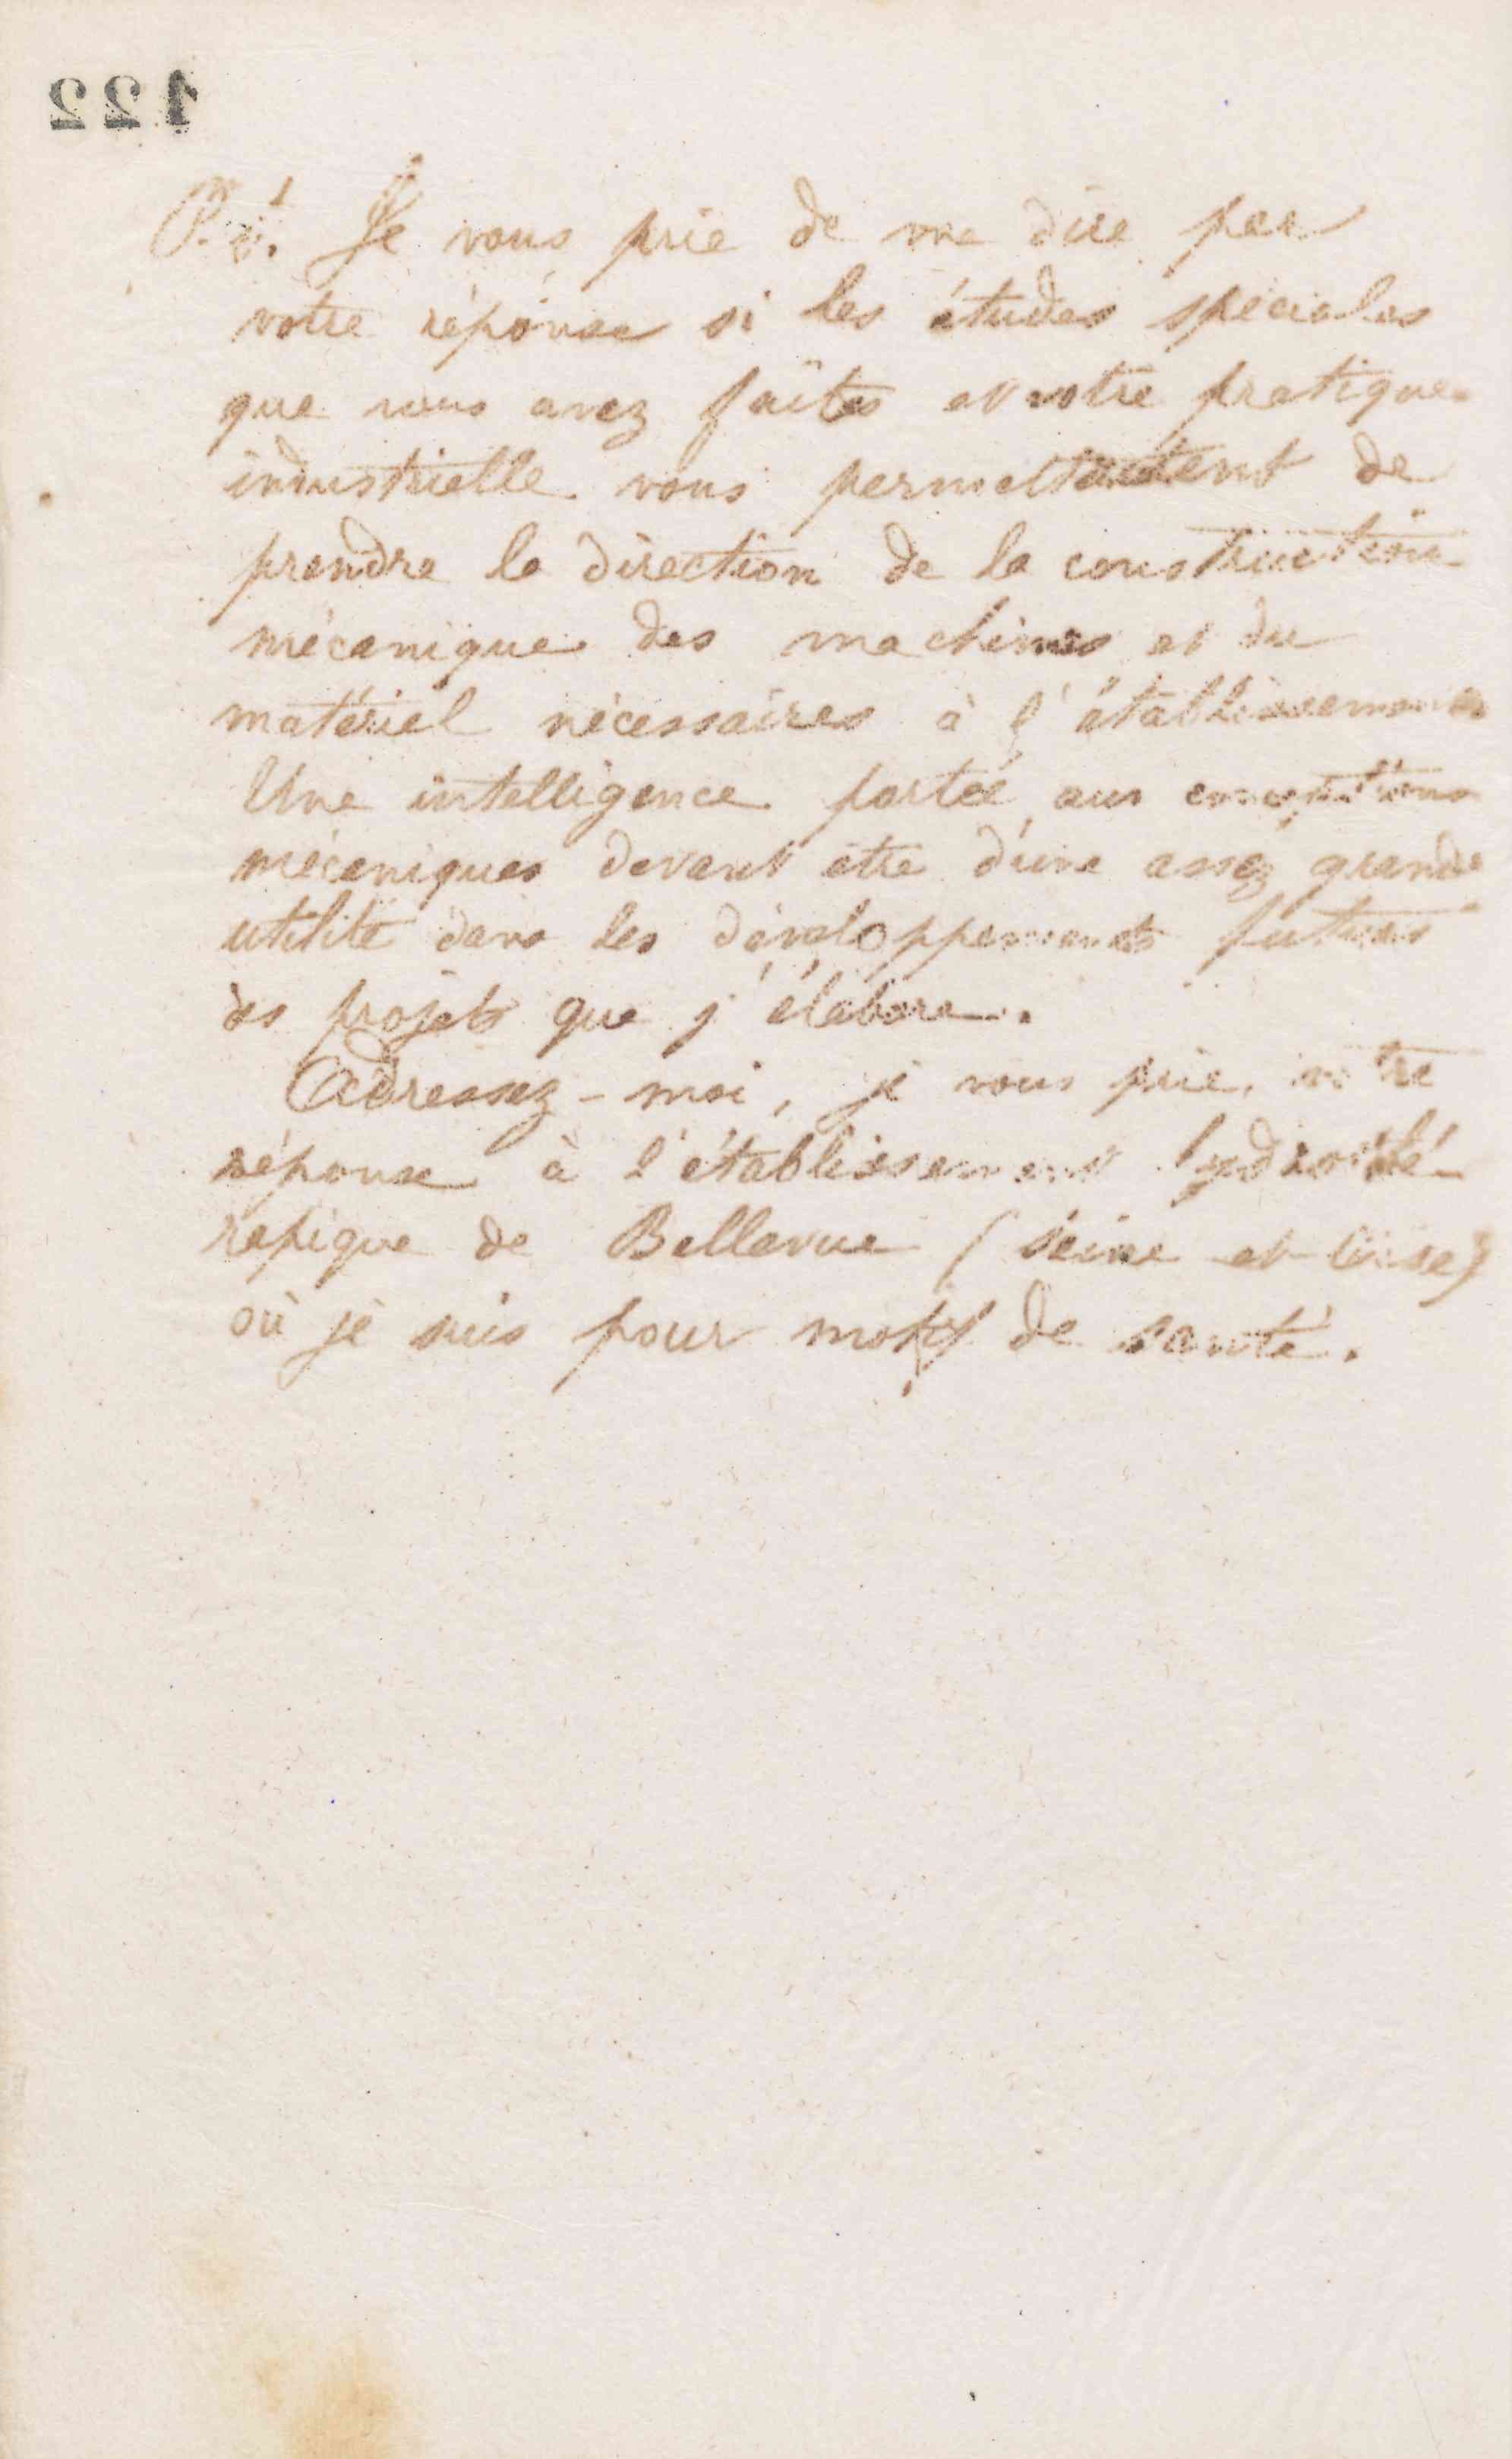 122
P.S. Je vous prie de me dire par
votre réponse si les études spéciales
que vous avez faites et votre pratique
industrielle vous permettraient de
prendre la direction de la construction
mécanique des machines et du
matériel nécessaires à l'établissement
Une intelligence portée aux conceptions
mécaniques devant être d'une assez grande
utilité dans les développements futurs
des projets que j'élabore.
Adressez-moi, je vous prie, votre
réponse à l'établissement hydrothé-
rapique de Bellevue (Seine et Oise)
où je suis pour motif de santé.